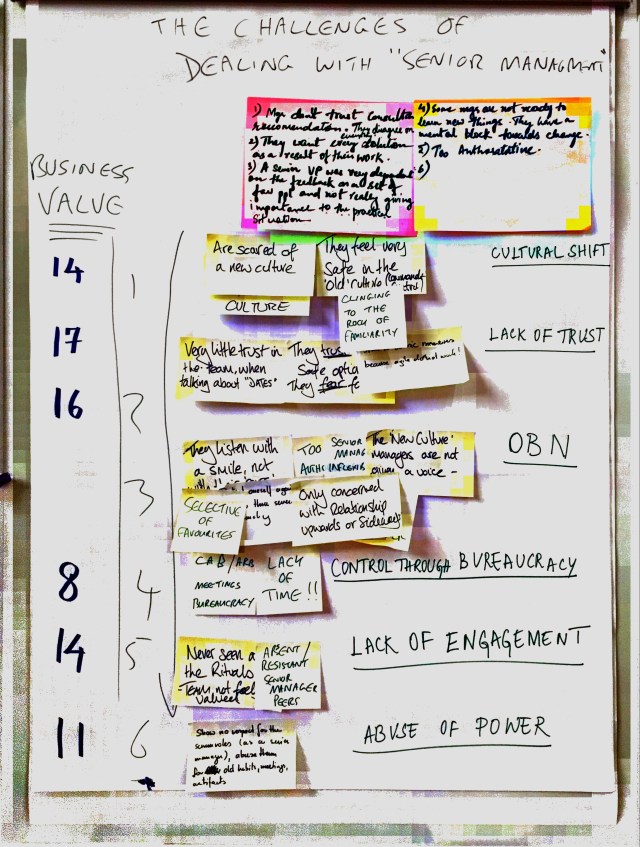 THE CHALLENGES OF
DEALING WITH "SENIOR MANAGMENT"
1) Mgr don't trust Consultant
recommendation. They disagree on
2) They want every solution
as a result of their work.
3) A senior VP was very dependent
on the feedback on a set of
few ppt and not really giving
importance to the practical
situation
4) Some mgrs are not ready to
learn new things. They have a
mental block towards change.
5) Too Authoratative.
6)
BUSINESS
VALUE
14
1
Are scared of
a new culture
CULTURE
They feel very
safe in the
'old' culture
CLINGING
TO THE
ROCK OF
FAMILIARITY
CULTURAL SHIFT
17
16
2
Very little trust in
the team, when
talking about "DATES"
They trus
Safe optio
They fear fe
because agile didn't work!
LACK OF TRUST
3
They listen with
a smile, not
TOO SENIOR
MANAG
AUTH INFLUENCE
The New Culture
managers are not
given a voice -
SELECTIVE
OF
FAVOURITES
Only concerned
with Relationship
upwards or Sideways
OBN
8
4
CAB/ARB
MEETINGS
BUREAUCRACY
LACK
OF
TIME !!
CONTROL THROUGH BUREAUCRACY
14
5
Never seen a
the Rituals
-Team not feel
valued
ABSENT/
RESISTANT
SENIOR
MANAGER
PEERS
LACK OF ENGAGEMENT
11
6
Show no respect for the
scrum roles (as a senior
manager), abuse them
for old habits, meetings,
artifacts
ABUSE OF POWER